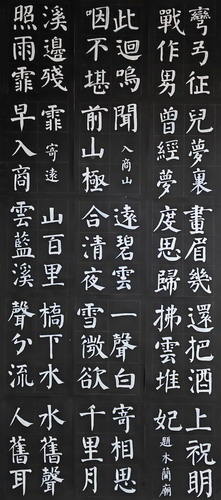 彎弓征
戰作男
兒夢裏
曾經與
畫眉幾
度思歸
還把酒
拂雲堆
上祝明
妃題木蘭廟
此迴嗚
咽不堪
聞入商山
前山極
遠碧雲
合清夜
一聲白
雪微欲
寄相思
千里月
溪邊殘
照雨霏
霏寄遠
早入商
山百里
雲藍溪
橋下水
聲分流
水舊聲
人舊耳